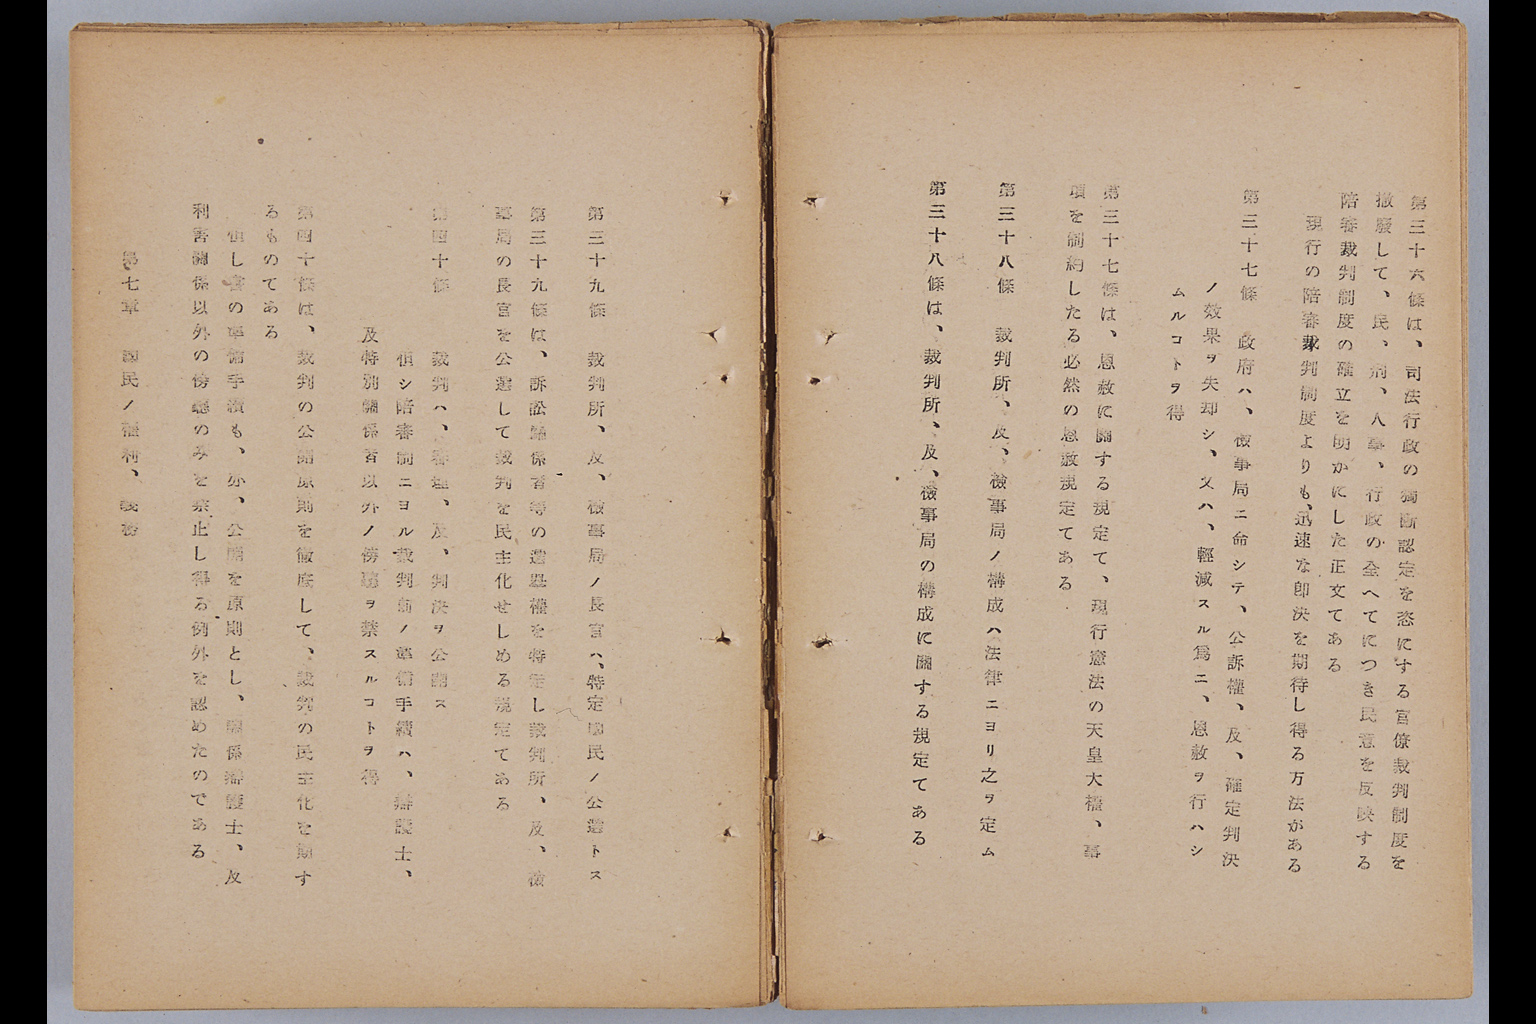 第三十六條は、司法行政の獨斷認定を恣にする官僚裁判制度を
撤廢して、民、刑、人事、行政の全へてにつき民意を反映する
陪審裁判制度の確立を明かにした正文てある
現行の陪審裁判制度よりも、迅速な即決を期待し得る方法がある
第三十七條　政府ハ、檢事局ニ命シテ、公訴權、及、確定判決
ノ效果ヲ失却シ、又ハ、輕減スル爲ニ、恩赦ヲ行ハシ
ムルコトヲ得
第三十七條は、恩赦に關する規定て、現行憲法の天皇大權、事
項を制約したる必然の恩赦規定てある
第三十八條　裁判所、及、檢事局ノ構成ハ法律ニヨリ之ヲ定ム
第三十八條は、裁判所、及、檢事局の構成に關する規定てある
第三十九條　裁判所、及、檢事局ノ長官ハ、特定國民ノ公選トス
第三十九條は、訴訟關係者等の選擧權を特定し裁判所、及、檢
事局の長官を公選して裁判を民主化せしめる規定てある
第四十條　裁判ハ、審理、及、判決ヲ公開ス
但シ陪審制ニヨル裁判前ノ準備手續ハ、辯護士、
及特別關係者以外ノ傍聽ヲ禁スルコトヲ得
第四十條は、裁判の公開原則を徹底して、裁判の民主化を期す
るものてある
但し書の準備手續も、亦、公開を原則とし、關係辯護士、及
利害關係以外の傍聽のみを禁止し得る例外を認めたのである
第七章　國民ノ權利、義務